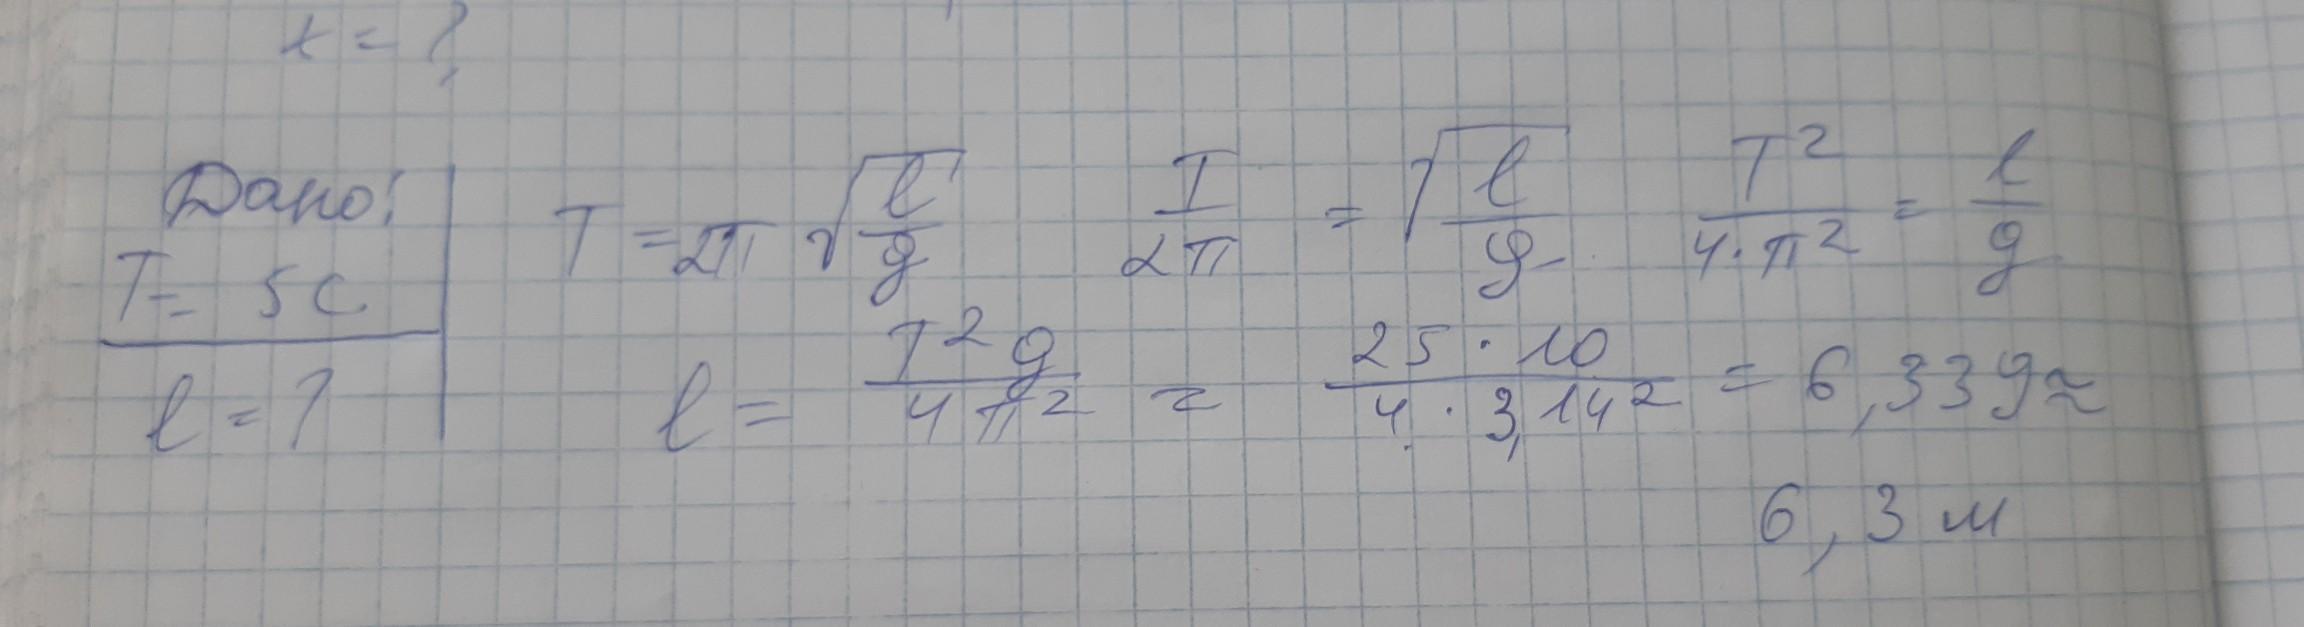 t = ?
Дано:
T = 5 c
l = ?
T = 2π √(l/g) T/2π = √(l/g) T²/4·π² = l/g
l = T²g/4π² = 25·10/4·3,14² = 6,339 ≈
6,3 м